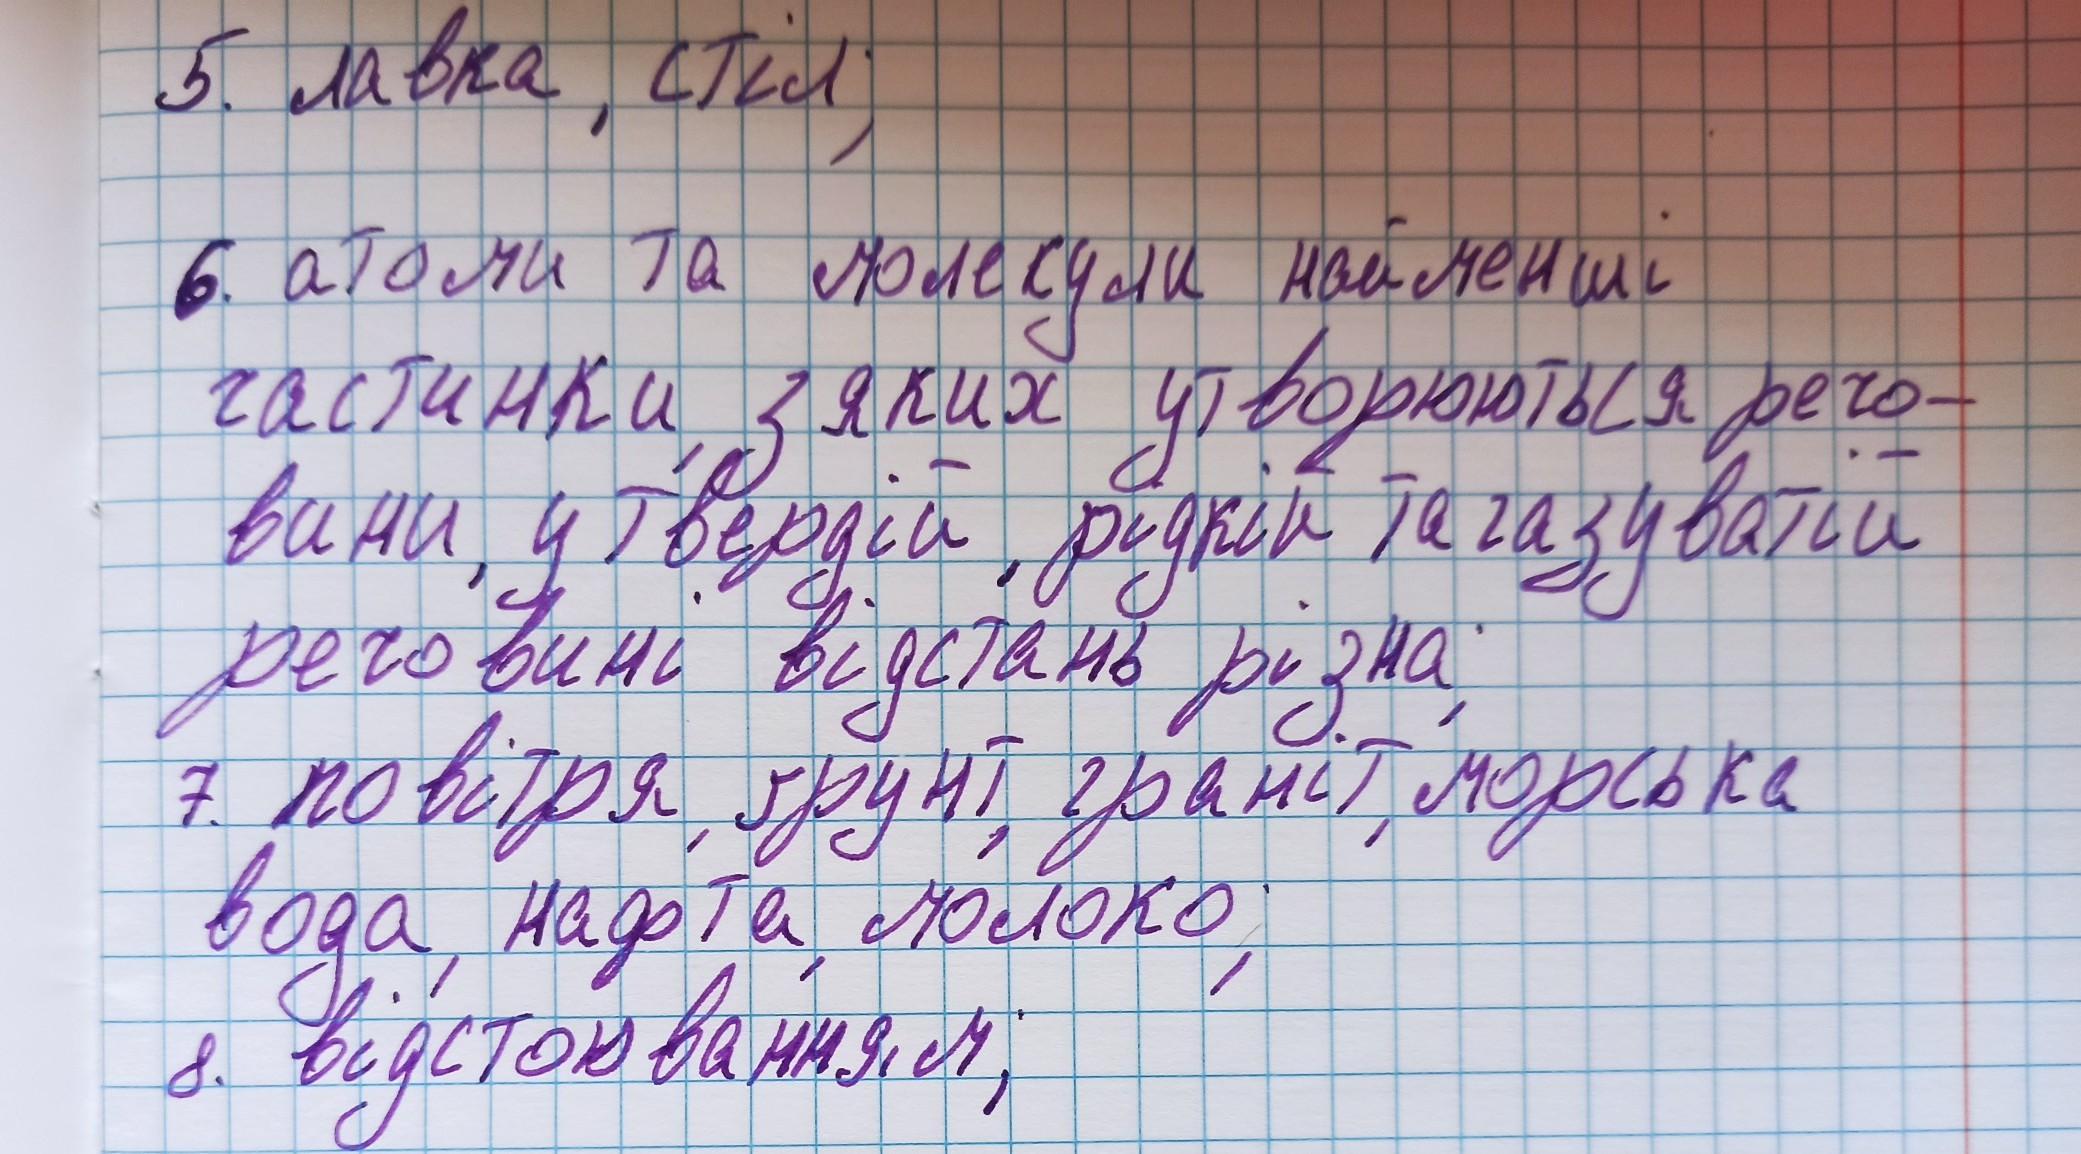 5. лавка, стіл;
6. атоми та молекули найменші
частинки, з яких утворюються речо-
вини, у твердій, рідкій та газуватій
речовині відстань різна;
7. повітря, ґрунт, граніт, морська
вода, нафта, молоко;
8. відстоюванням;